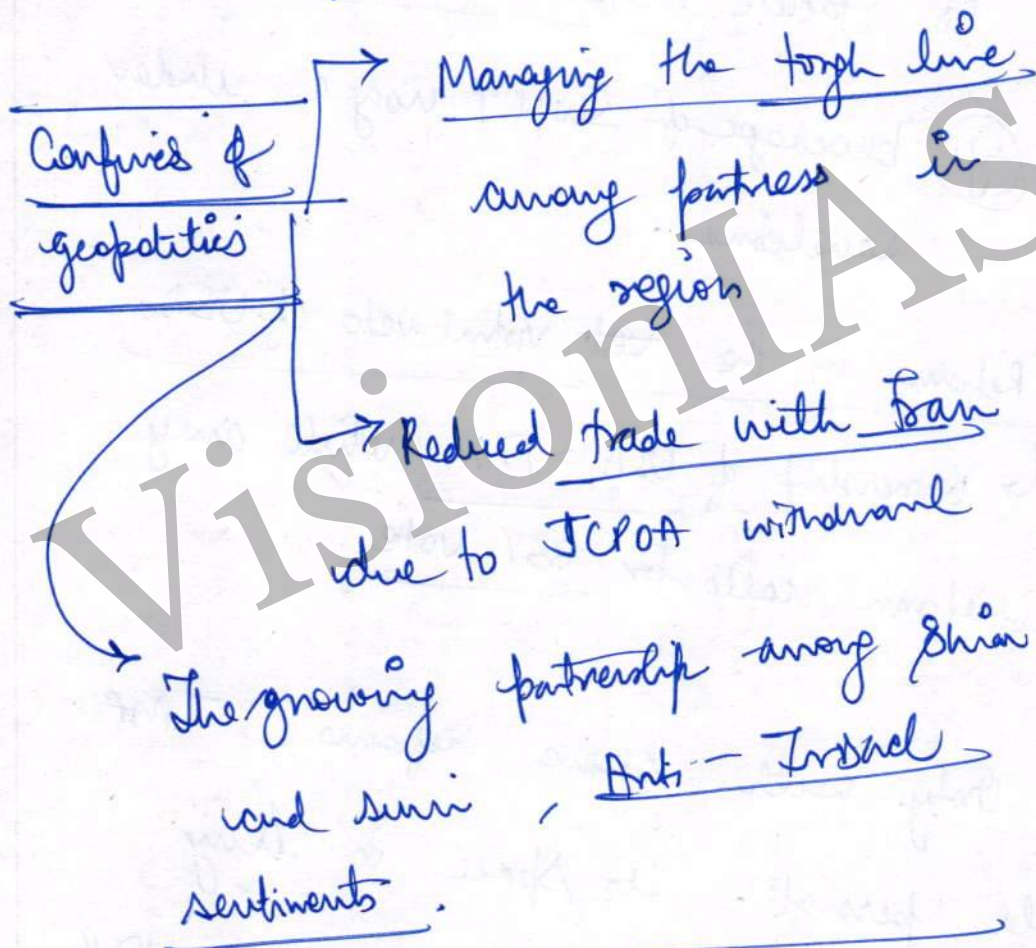 Confines of
geopolitics
Managing the tough line
among partners in
the region
Reduced trade with Iran
due to JCPOA withdrawl
The growing partnership among Shian
and sunni, Anti - Israel
sentiments.
VisionIAS